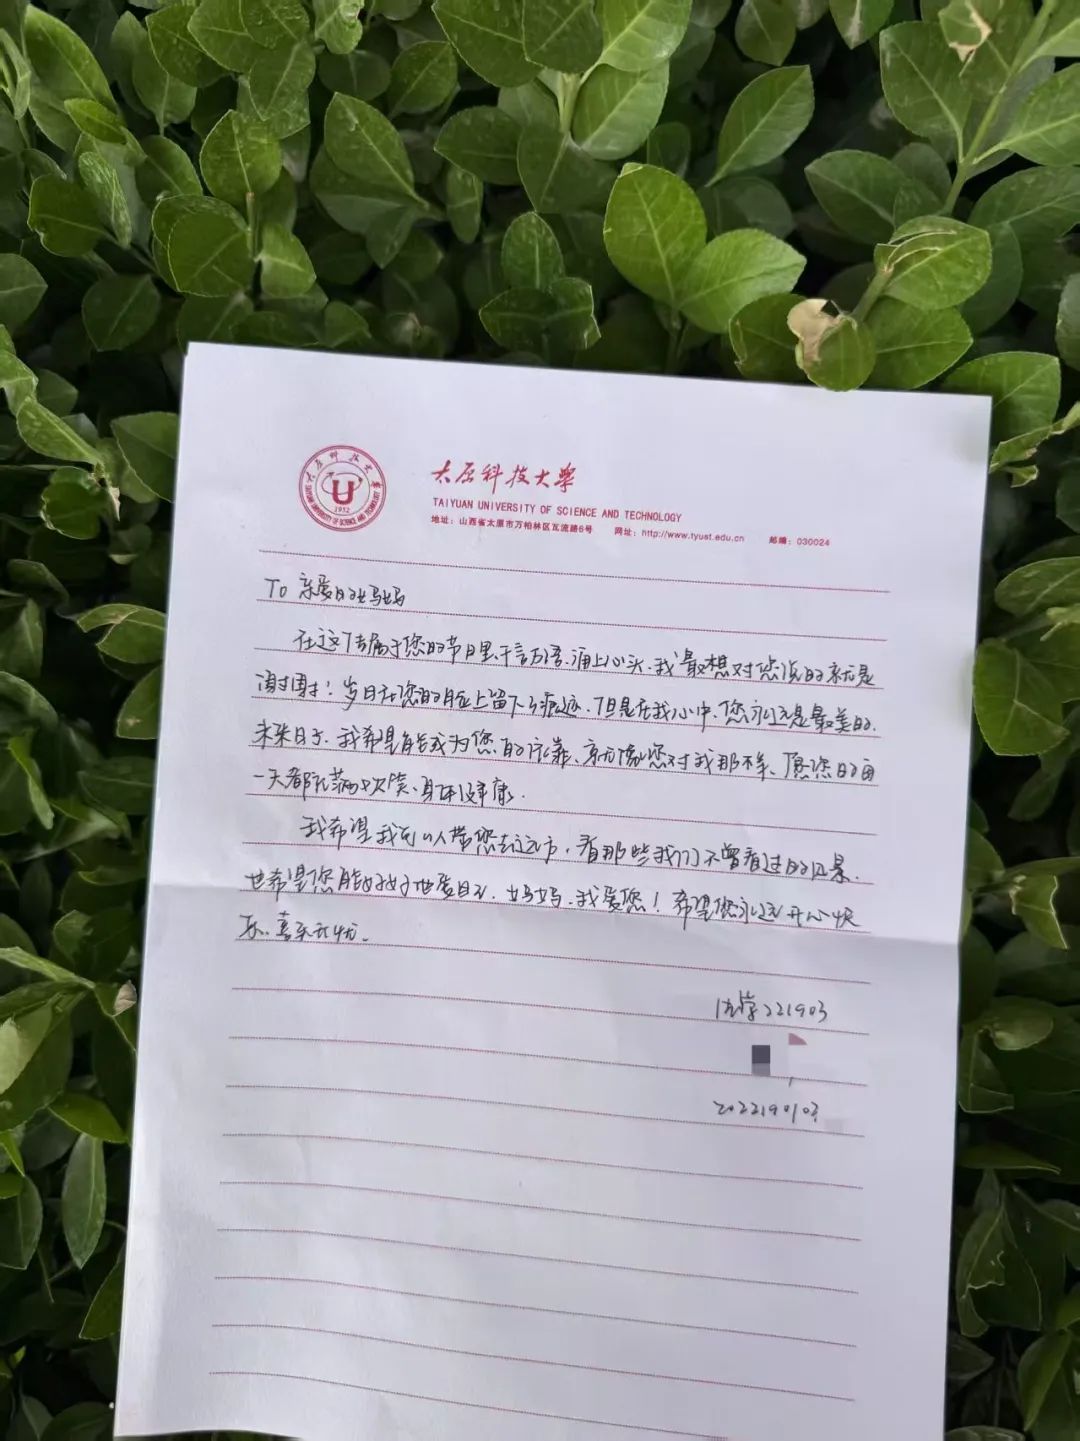 太原科技大学
TAIYUAN UNIVERSITY OF SCIENCE AND TECHNOLOGY
1952
太原科技大学
TAIYUAN UNIVERSITY OF SCIENCE AND TECHNOLOGY
地址：山西省太原市万柏林区瓦流路66号 网址：http://www.tyust.edu.cn 邮编：030024
To 亲爱的妈妈
在这个专属于您的节日里，千言万语，涌上心头，我最想对您说的就是
谢谢！岁月在您的脸上留下了痕迹，但是在我心中，您永远是最美的。
未来日子，我希望能成为您的依靠，就像您对我那样，愿您的每
一天都充满欢笑、身体健康。
我希望我可以带您去远方，看那些我们不曾看过的风景，
也希望您能好好地爱自己，妈妈，我爱您！希望您永远开心快
乐、喜乐无忧。
法学221903
2022190103